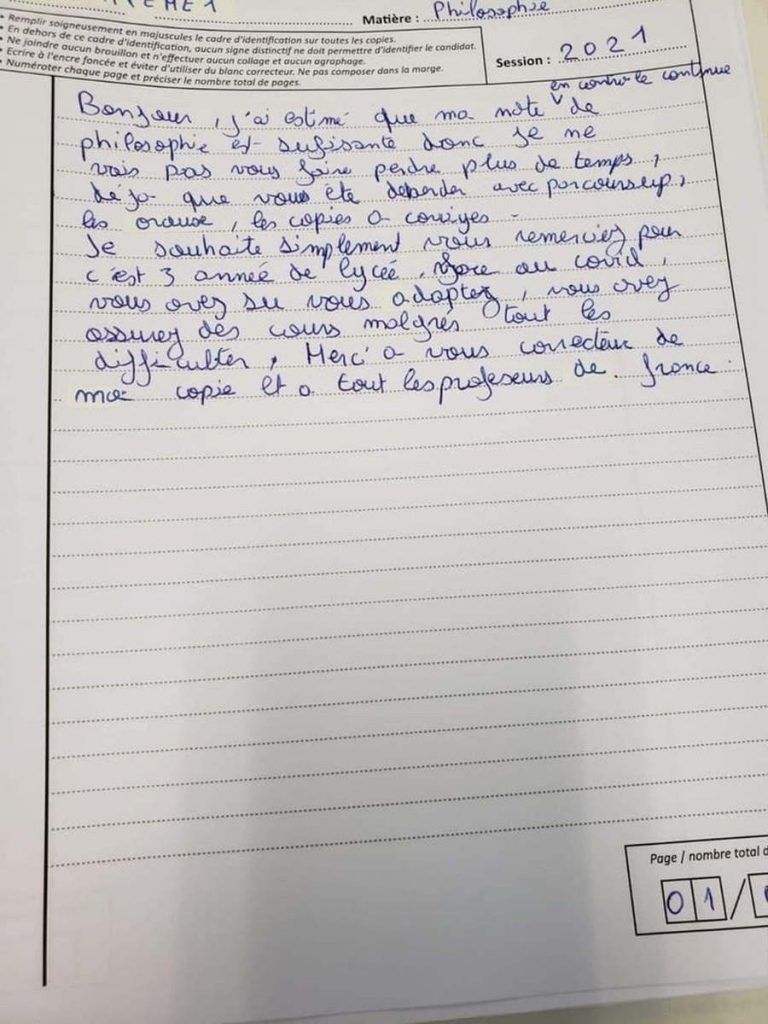 Matière : Philosophie
• Remplir soigneusement en majuscules le cadre d'identification sur toutes les copies.
• En dehors de ce cadre d'identification, aucun signe distinctif ne doit permettre d'identifier le candidat.
• Ne joindre aucun brouillon et n'effectuer aucun collage et aucun agraphage.
• Ecrire à l'encre foncée et éviter d'utiliser du blanc correcteur. Ne pas composer dans la marge.
• Numéroter chaque page et préciser le nombre total de pages.
Session : 2021
en contrôle continue
Bonjour, j'ai estimé que ma note de
philosophie est sufissante donc je ne
vais pas vous faire perdre plus de temps,
déja que vous ête deborder avec parcoursup,
les oraux, les copies a corriges.
Je souhaite simplement vous remerciez pour
c'est 3 année de lycée, face au covid,
vous avez su vous adaptez, vous avez
assurez des cours malgrés tout les
difficulter, Merci a vous correcteur de
ma copie et a tout les profeseurs de france.
Page / nombre total d
01 /